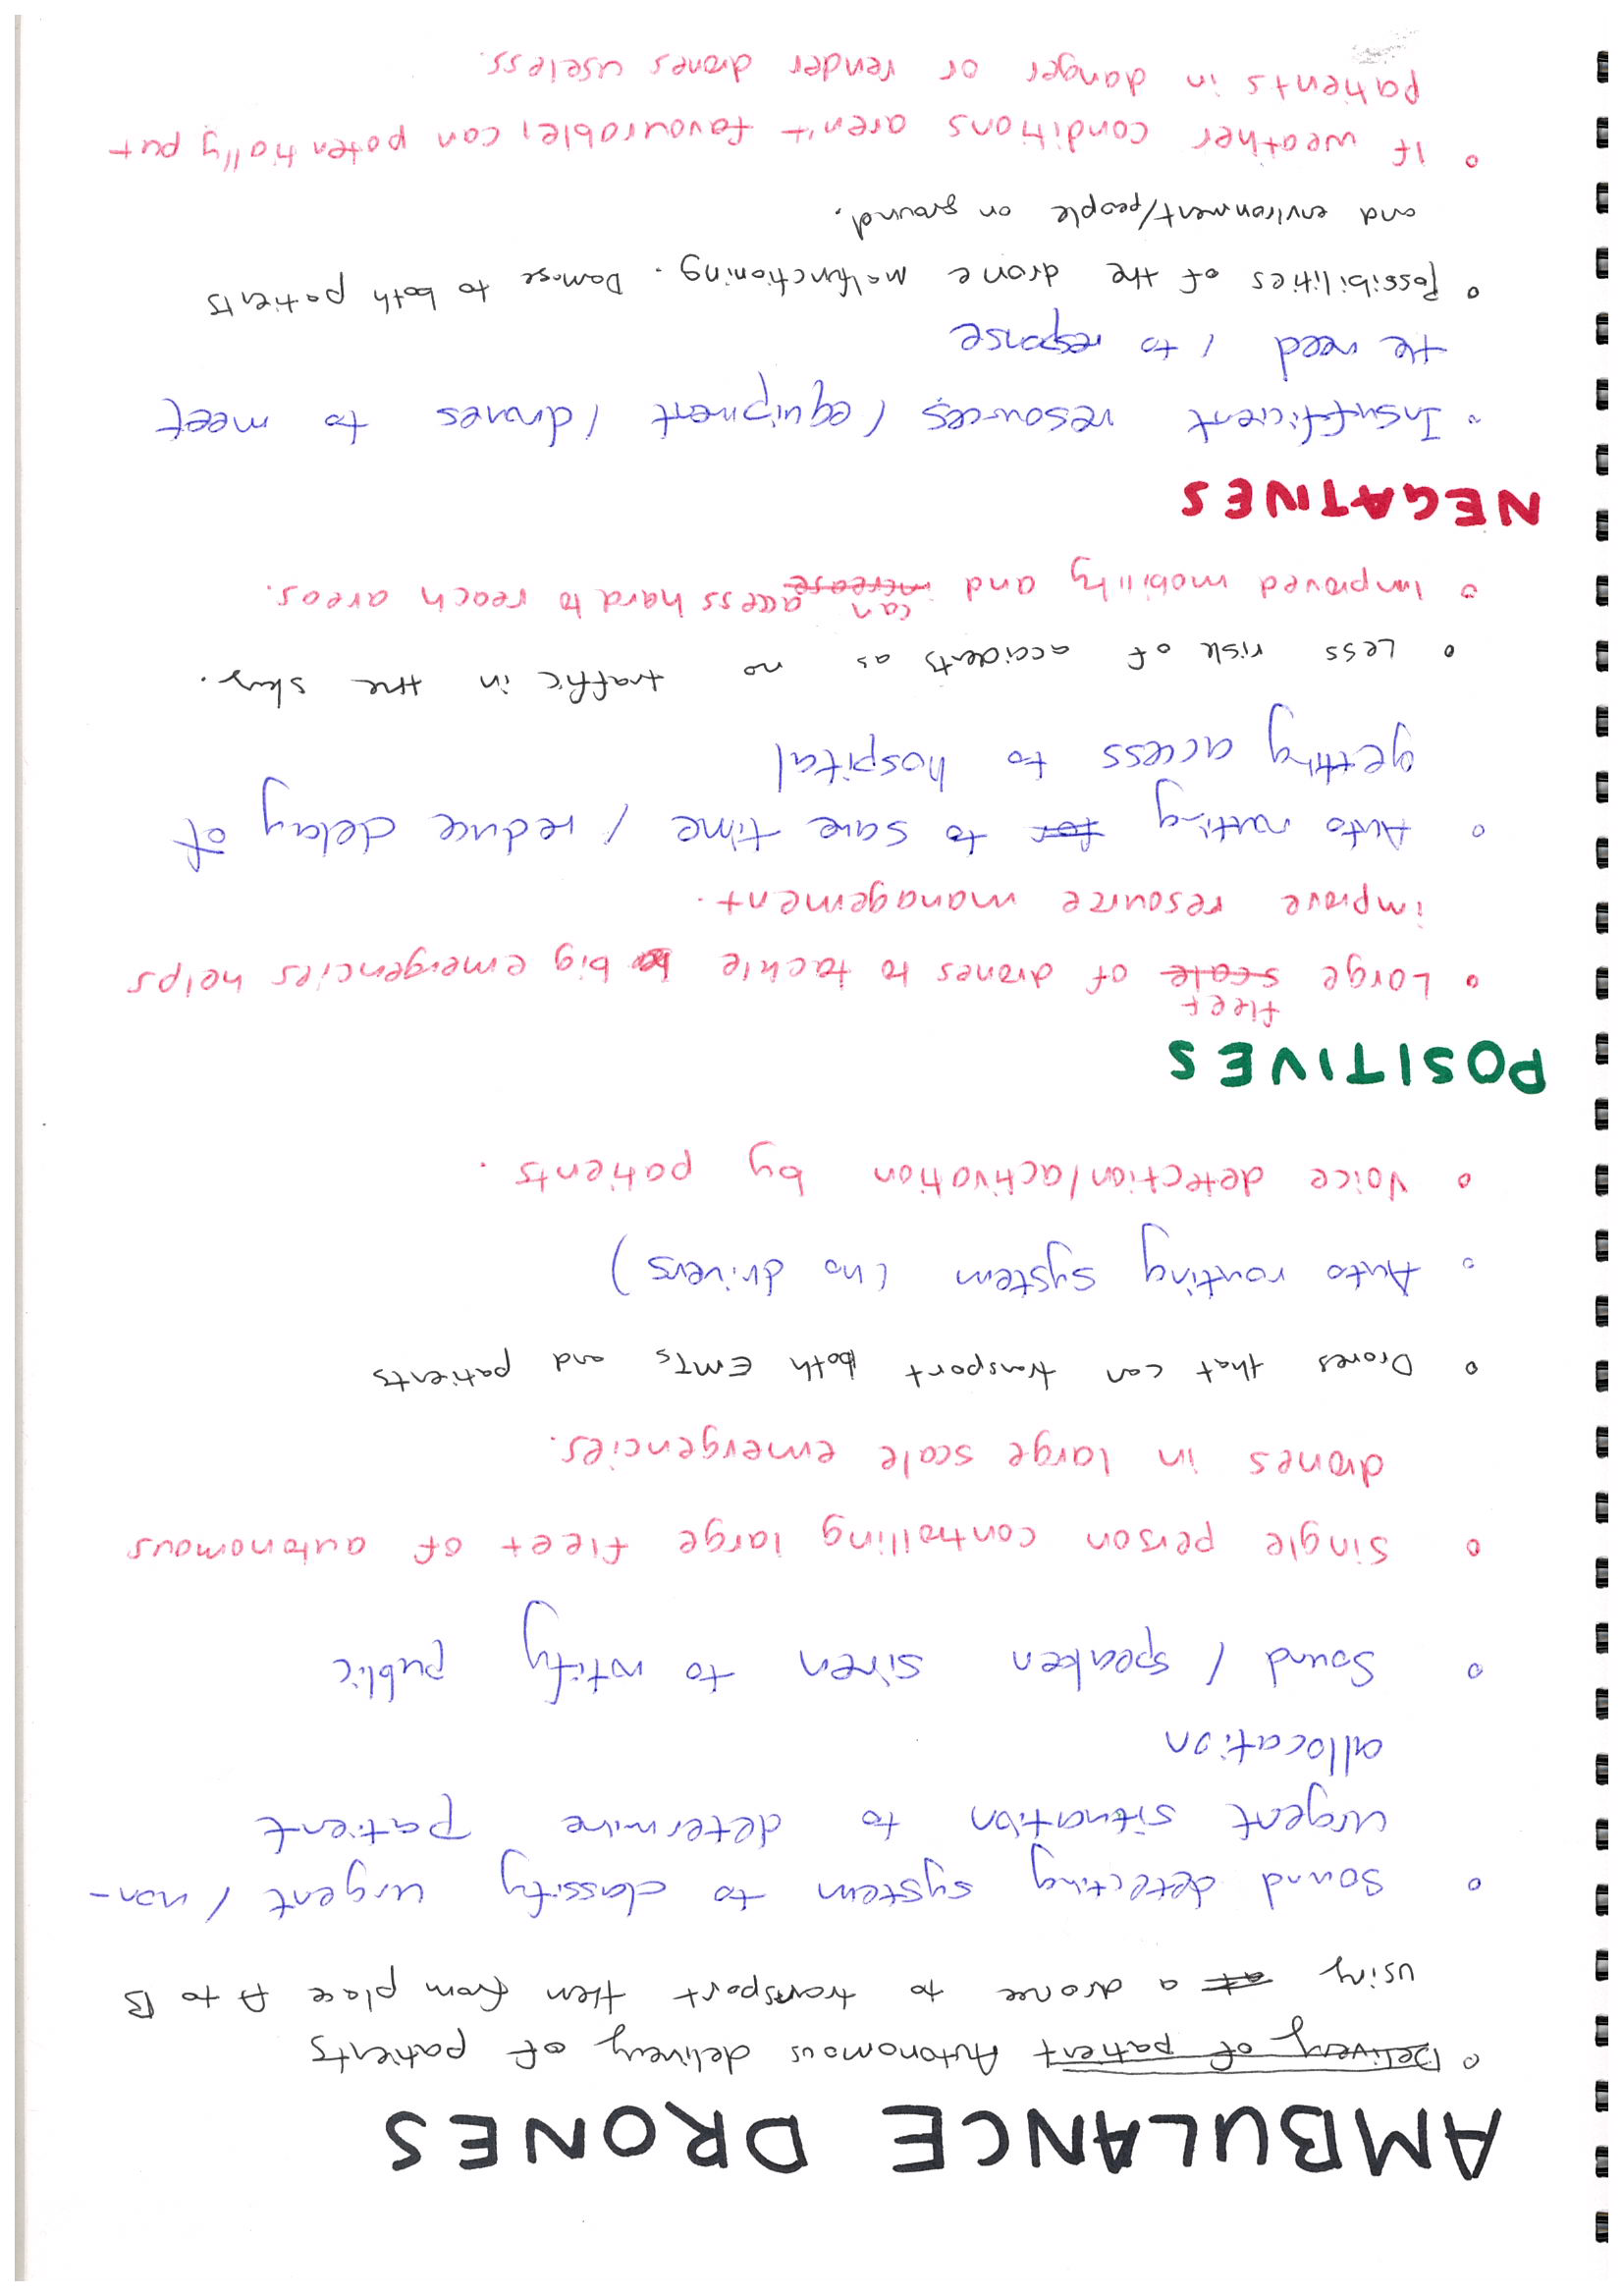 AMBULANCE DRONES
◦ Delivery of patient Autonomous delivery of patients
using at a drone to transport them from place A to B
◦ Sound detecting system to classify urgent / non-
urgent situation to determine patient
allocation
◦ Sound / speaker siren to notify public
◦ Single person controlling large fleet of autonomous
drones in large scale emergencies.
◦ Drones that can transport both EMTs and patients
◦ Auto routing system (no drivers)
◦ Voice detection/activation by patients.
POSITIVES
fleet
◦ Large scale of drones to tackle big emergencies helps
improve resource management.
◦ Auto routing for to save time / reduce delay of
getting access to hospital
◦ Less risk of accidents as no traffic in the sky.
can
◦ Improved mobility and increase access hard to reach areas.
NEGATIVES
◦ Insufficient resources / equipment / drones to meet
the need / to response
◦ Possibilities of the drone malfunctioning. Damage to both patients
and environment/people on ground.
◦ If weather conditions aren't favourable, can potentially put
patients in danger or render drones useless.